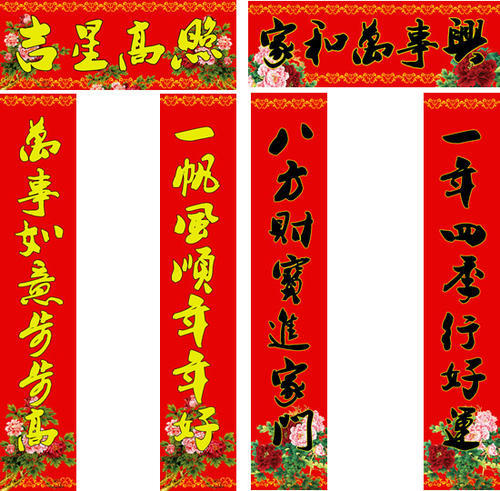 吉星高照
家和萬事興
萬事如意步步高
一帆風順年年好
八方財寶進家門
一年四季行好運